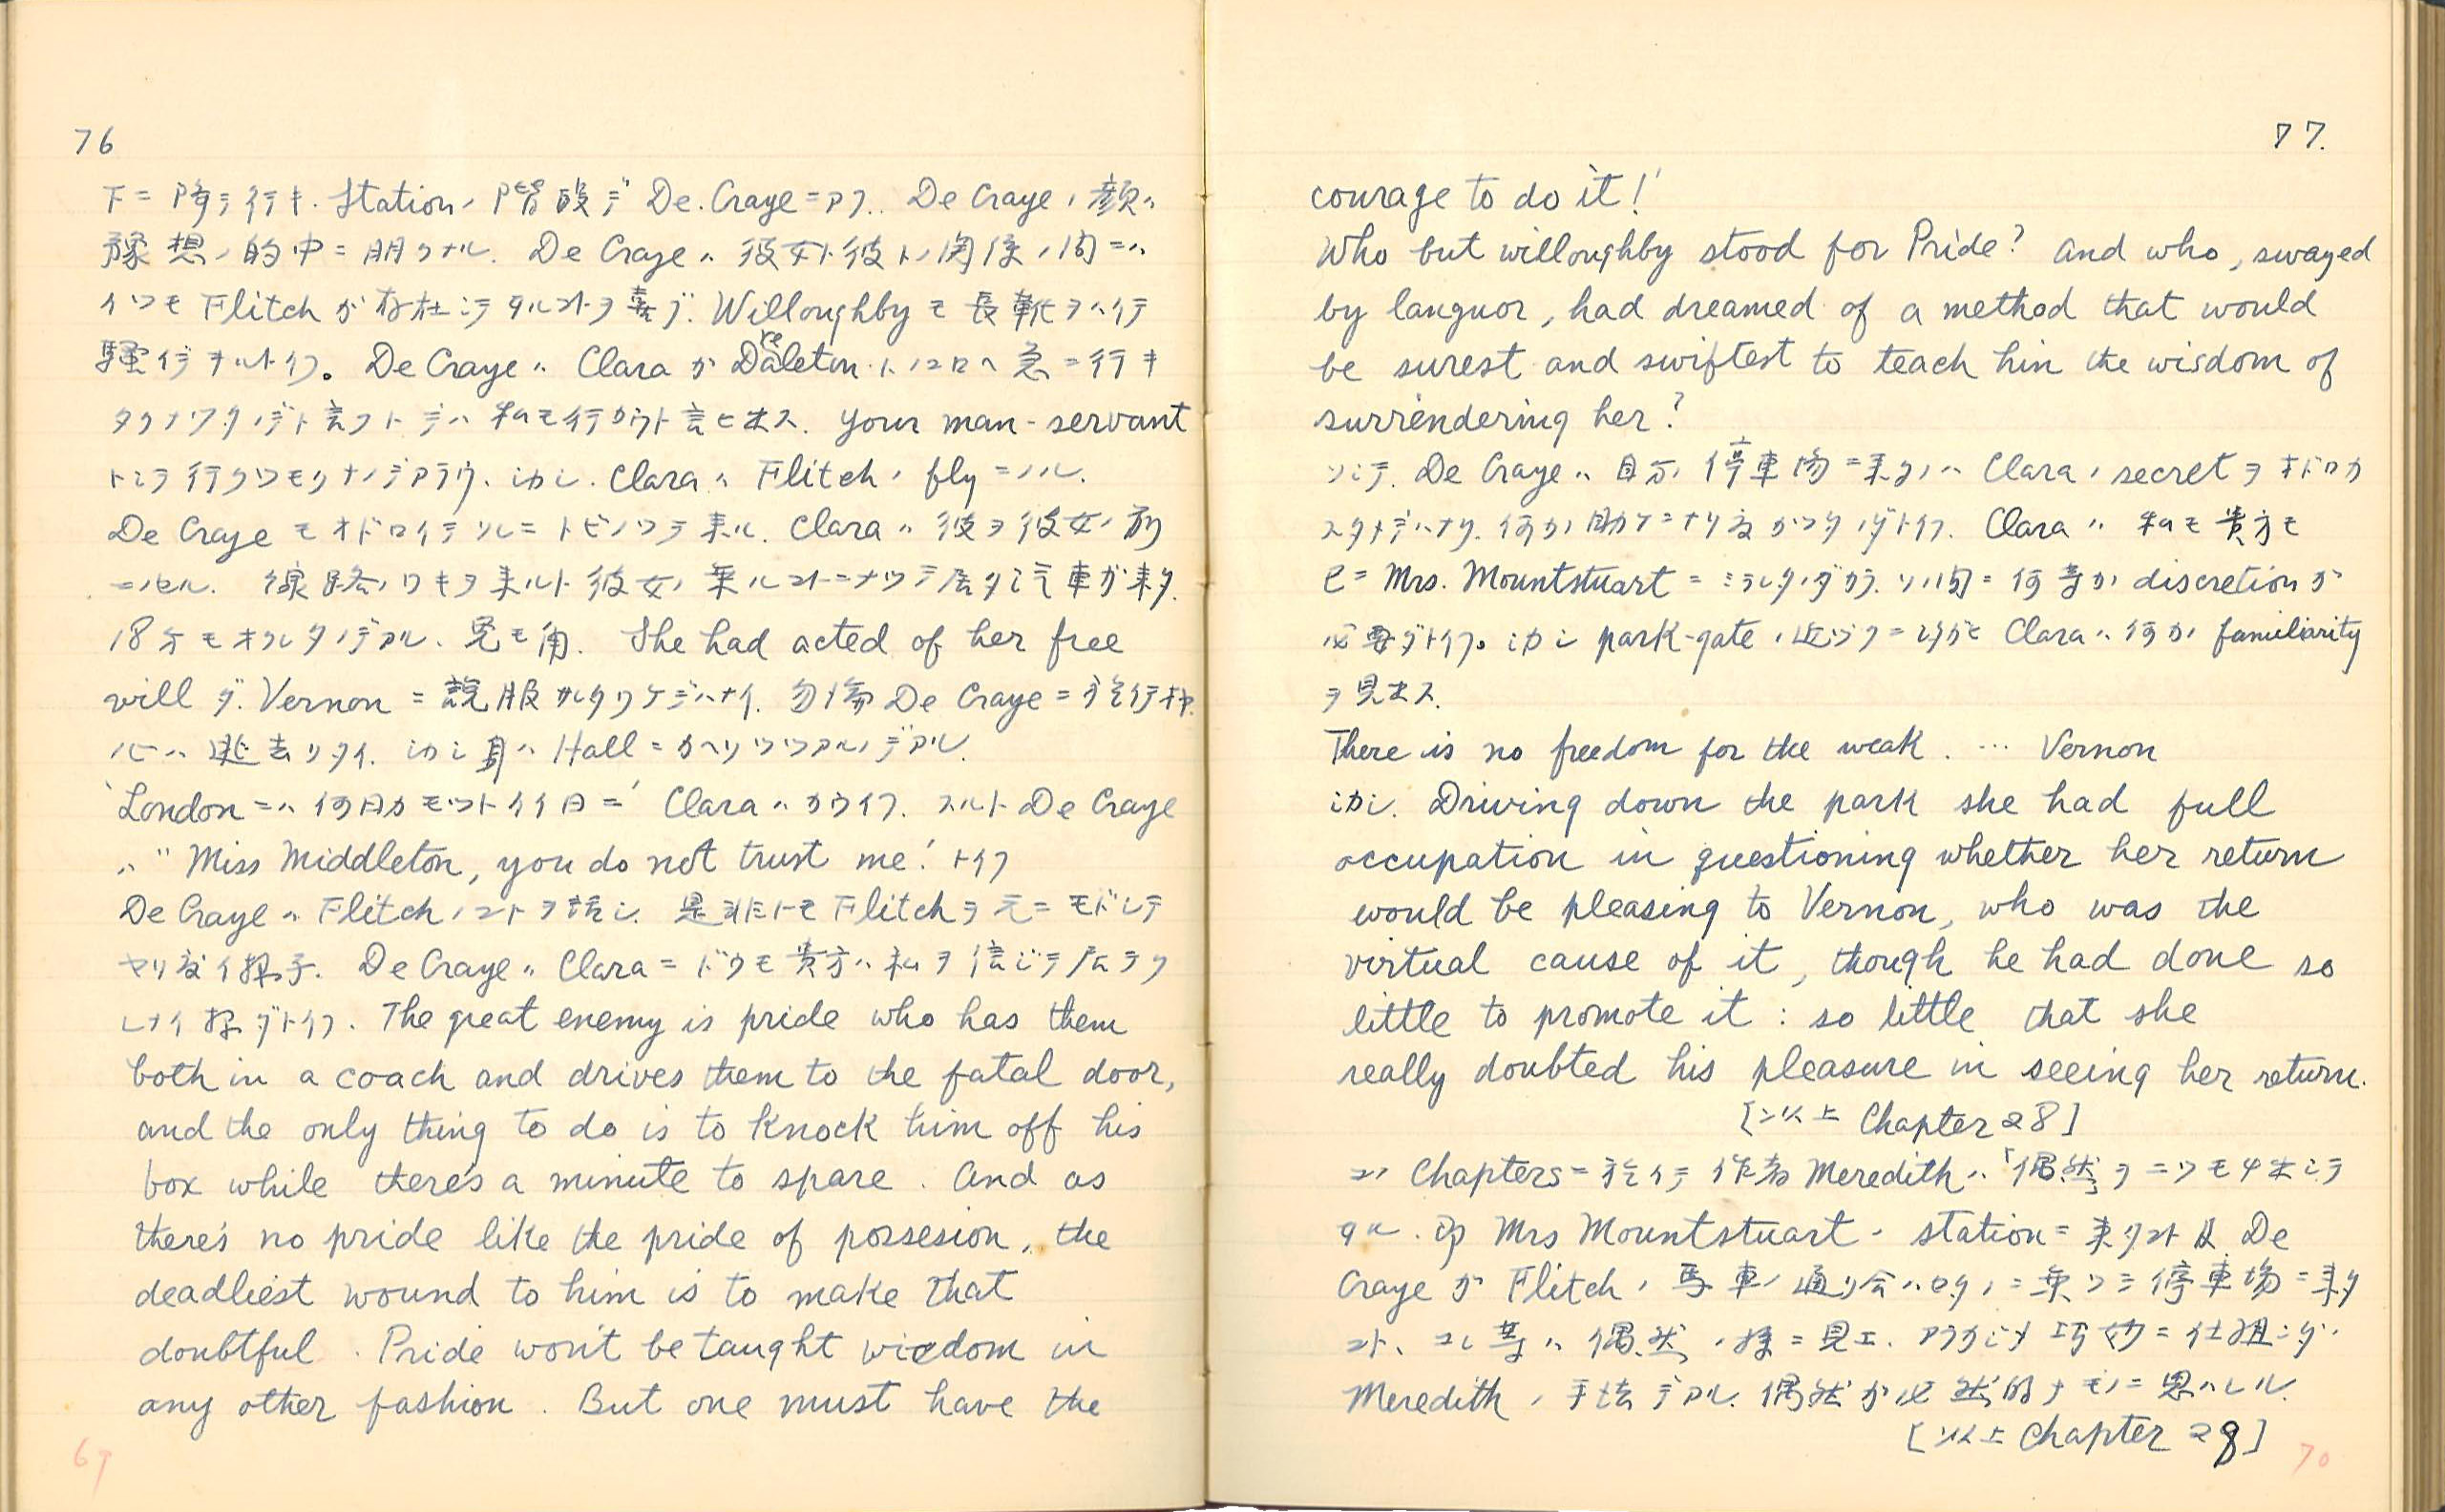 76
下ニ降リテ行キ. Station ノ階段デ De.Craye ニアフ. De Craye ノ顔ハ
豫想ノ的中ニ明クナル. De Craye ハ 彼女ト彼トノ関係ノ間ニハ
イツモ Flitch ガ存在シテ タルコトヲ喜ブ. Willoughby モ長靴ヲハイテ
騒イデ ヰルトイフ。 De Craye ハ Clara ガ Dreleton トノコロヘ急ニ行キ
タクナツタノデト言フト デハ私モ行カウト言ヒ出ス. Your man-servant
トシテ行クツモリナノデアラウ. 併シ. Clara ハ Flitch ノ fly ニノル.
De Craye モオドロイテ ソレニ トビノツテ来ル. Clara ハ 彼ヲ彼女ノ前
ニノセル. 線路ノワキヲ来ルト彼女ノ乗ルコトニナツテ居タ汽車ガ来タ.
18分モオクレタノデアル. 兎モ角. She had acted of her free
will ダ. Vernon ニ説服サレタワケデハナイ. 勿論 De Craye ニ於テオヤ.
心ハ逃去リタイ. 併シ身ハ Hall ニカヘリツツアルノデアル.
'London ニハ何日カモツトイイ日ニ' Clara ハカウイフ. スルト De Craye
ハ "Miss Middleton, you do not trust me!' トイフ
De Craye ハ Flitch ノコトヲ話シ. 是非トモ Flitch ヲ元ニモドシテ
ヤリ度イ様子. De Craye ハ Clara ニドウモ貴方ハ私ヲ信ジテ居ラ
レナイ様ダトイフ. The great enemy is pride who has them
both in a coach and drives them to the fatal door,
and the only thing to do is to knock him off his
box while there's a minute to spare. And as
there's no pride like the pride of possesion, the
deadliest wound to him is to make that
doubtful. Pride won't be taught wisdom in
any other fashion. But one must have the
69
77.
courage to do it!'
Who but willoughby stood for Pride? And who, swayed
by languor, had dreamed of a method that would
be surest and swiftest to teach him the wisdom of
surrendering her?
ソシテ. De Craye ハ自分ノ停車場ニ来タノハ Clara ノ secret ヲオドロカ
スタメデハナク. 何カノ助ケニナリ度カツタノダトイフ. Clara ハ 私モ貴方モ
已ニ Mrs. Mountstuart ニミラレタノダカラ. ソノ間ニ何等カノ discretion ガ
必要ダトイフ。 併シ park-gate ノ近ヅクニ従ヒ Clara ハ何カノ familiarity
ヲ見出ス.
There is no freedom for the weak. ... Vernon
併シ. Driving down the park she had full
occupation in questioning whether her return
would be pleasing to Vernon, who was the
virtual cause of it, though he had done so
little to promote it: so little that she
really doubted his pleasure in seeing her return.
[以上 Chapter 28]
コノ Chapters ニ於イテ作者 Meredith ハ「偶然」ヲ二ツモ出シテ
ヰル. 即 Mrs Mountstuart ノ station ニ来タコト及 De
Craye ガ Flitch ノ馬車ノ通リ合ハセタノニ乗ツテ停車場ニ来タ
コト、コレ等ハ偶然ノ様ニ見エ. アラカジメ巧妙ニ仕組ンダ
Meredith ノ手法デアル. 偶然ガ必然的ナモノニ思ハレル.
[以上 Chapter 28]
70